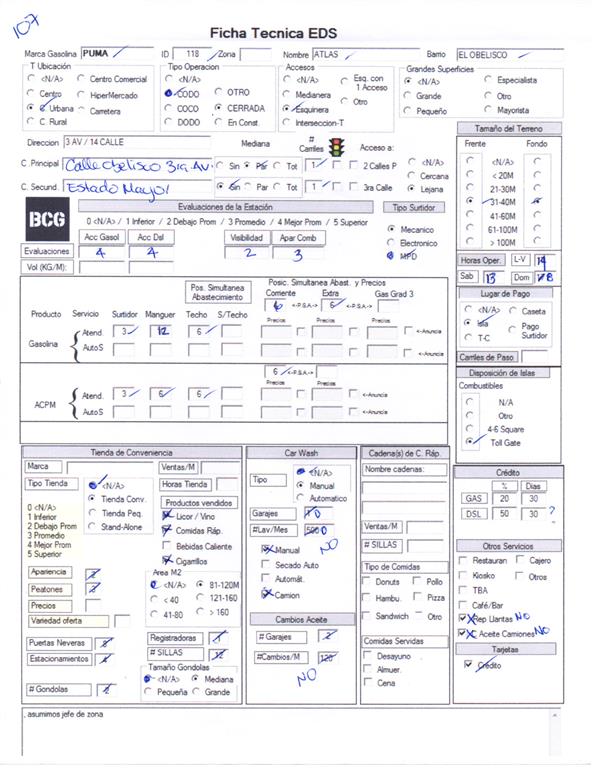 107
Ficha Tecnica EDS
Marca Gasolina PUMA ID 118 Zona Nombre ATLAS Barrio EL OBELISCO
T Ubicación
<N/A> Centro Comercial
Centro HiperMercado
C. Urbana Carretera
C. Rural
Tipo Operacion
<N/A>
CODO OTRO
COCO CERRADA
DODO En Const.
Accesos
<N/A> Esq. con 1 Acceso
Medianera
Esquinera Otro
Interseccion-T
Grandes Superficies
<N/A> Especialista
Grande Otro
Pequeño Mayorista
Direccion 3 AV / 14 CALLE Mediana # Carriles Acceso a:
C. Principal Calle Obelisco 3ra. AV. Sin Par Tot 1 2 Calles P
C. Secund. Estado Mayor Sin Par Tot 1 3ra Calle
<N/A>
Cercana
Lejana
Tamaño del Terreno
Frente Fondo
<N/A>
< 20M
21-30M
31-40M
41-60M
61-100M
> 100M
BCG
Evaluaciones de la Estación
0 <N/A> / 1 Inferior / 2 Debajo Prom / 3 Promedio / 4 Mejor Prom / 5 Superior
Acc Gasol Acc Dsl Visibilidad Apar Comb
Evaluaciones 4 4 2 3
Vol (KG/M):
Tipo Surtidor
Mecanico
Electronico
MPD
Horas Oper. L-V 14
Sab 13 Dom 8
Pos. Simultanea Abastecimiento
Posic. Simultanea Abast. y Precios
Corriente Extra Gas Grad 3
6 <-P.S.A-> 6 <-P.S.A->
Producto Servicio Surtidor Manguer Techo S/Techo Precios Precios Precios
Gasolina Atend. 3 12 6 <-Anuncia
AutoS
6 <-P.S.A->
Precios Precios
ACPM Atend. 3 6 6 <-Anuncia
AutoS
Lugar de Pago
<N/A> Caseta
Isla Pago Surtidor
T-C
Carriles de Paso
Disposición de Islas
Combustibles
N/A
Otro
4-6 Square
Toll Gate
Tienda de Conveniencia
Marca Ventas/M
Tipo Tienda <N/A> Horas Tienda
Tienda Conv.
Tienda Peq.
Stand-Alone
0 <N/A>
1 Inferior
2 Debajo Prom
3 Promedio
4 Mejor Prom
5 Superior
Productos vendidos
Licor / Vino
Comidas Ráp.
Bebidas Caliente
Cigarrillos
Apariencia 2
Peatones 3
Precios
Variedad oferta
Area M2
<N/A> 81-120M
< 40 121-160
41-80 > 160
Puertas Neveras
Registradoras 1
Estacionamientos 4
# SILLAS 12
# Gondolas 2
Tamaño Gondolas
<N/A> Mediana
Pequeña Grande
Car Wash
Tipo <N/A>
Manual
Automatico
Garajes
#Lav/Mes
Manual NO
Secado Auto
Automát.
Camion
Cambios Aceite
# Garajes 2
#Cambios/M 120
NO
Cadena(s) de C. Ráp.
Nombre cadenas:
Ventas/M
# SILLAS
Tipo de Comidas
Donuts Pollo
Hambu. Pizza
Sandwich Otro
Comidas Servidas
Desayuno
Almuer.
Cena
Crédito
% Dias
GAS 20 30
DSL 50 30 ?
Otros Servicios
Restauran Cajero
Kiosko Otros
TBA
Café/Bar
Rep Llantas NO
C Aceite Camiones NO
Tarjetas
Crédito
, asumimos jefe de zona